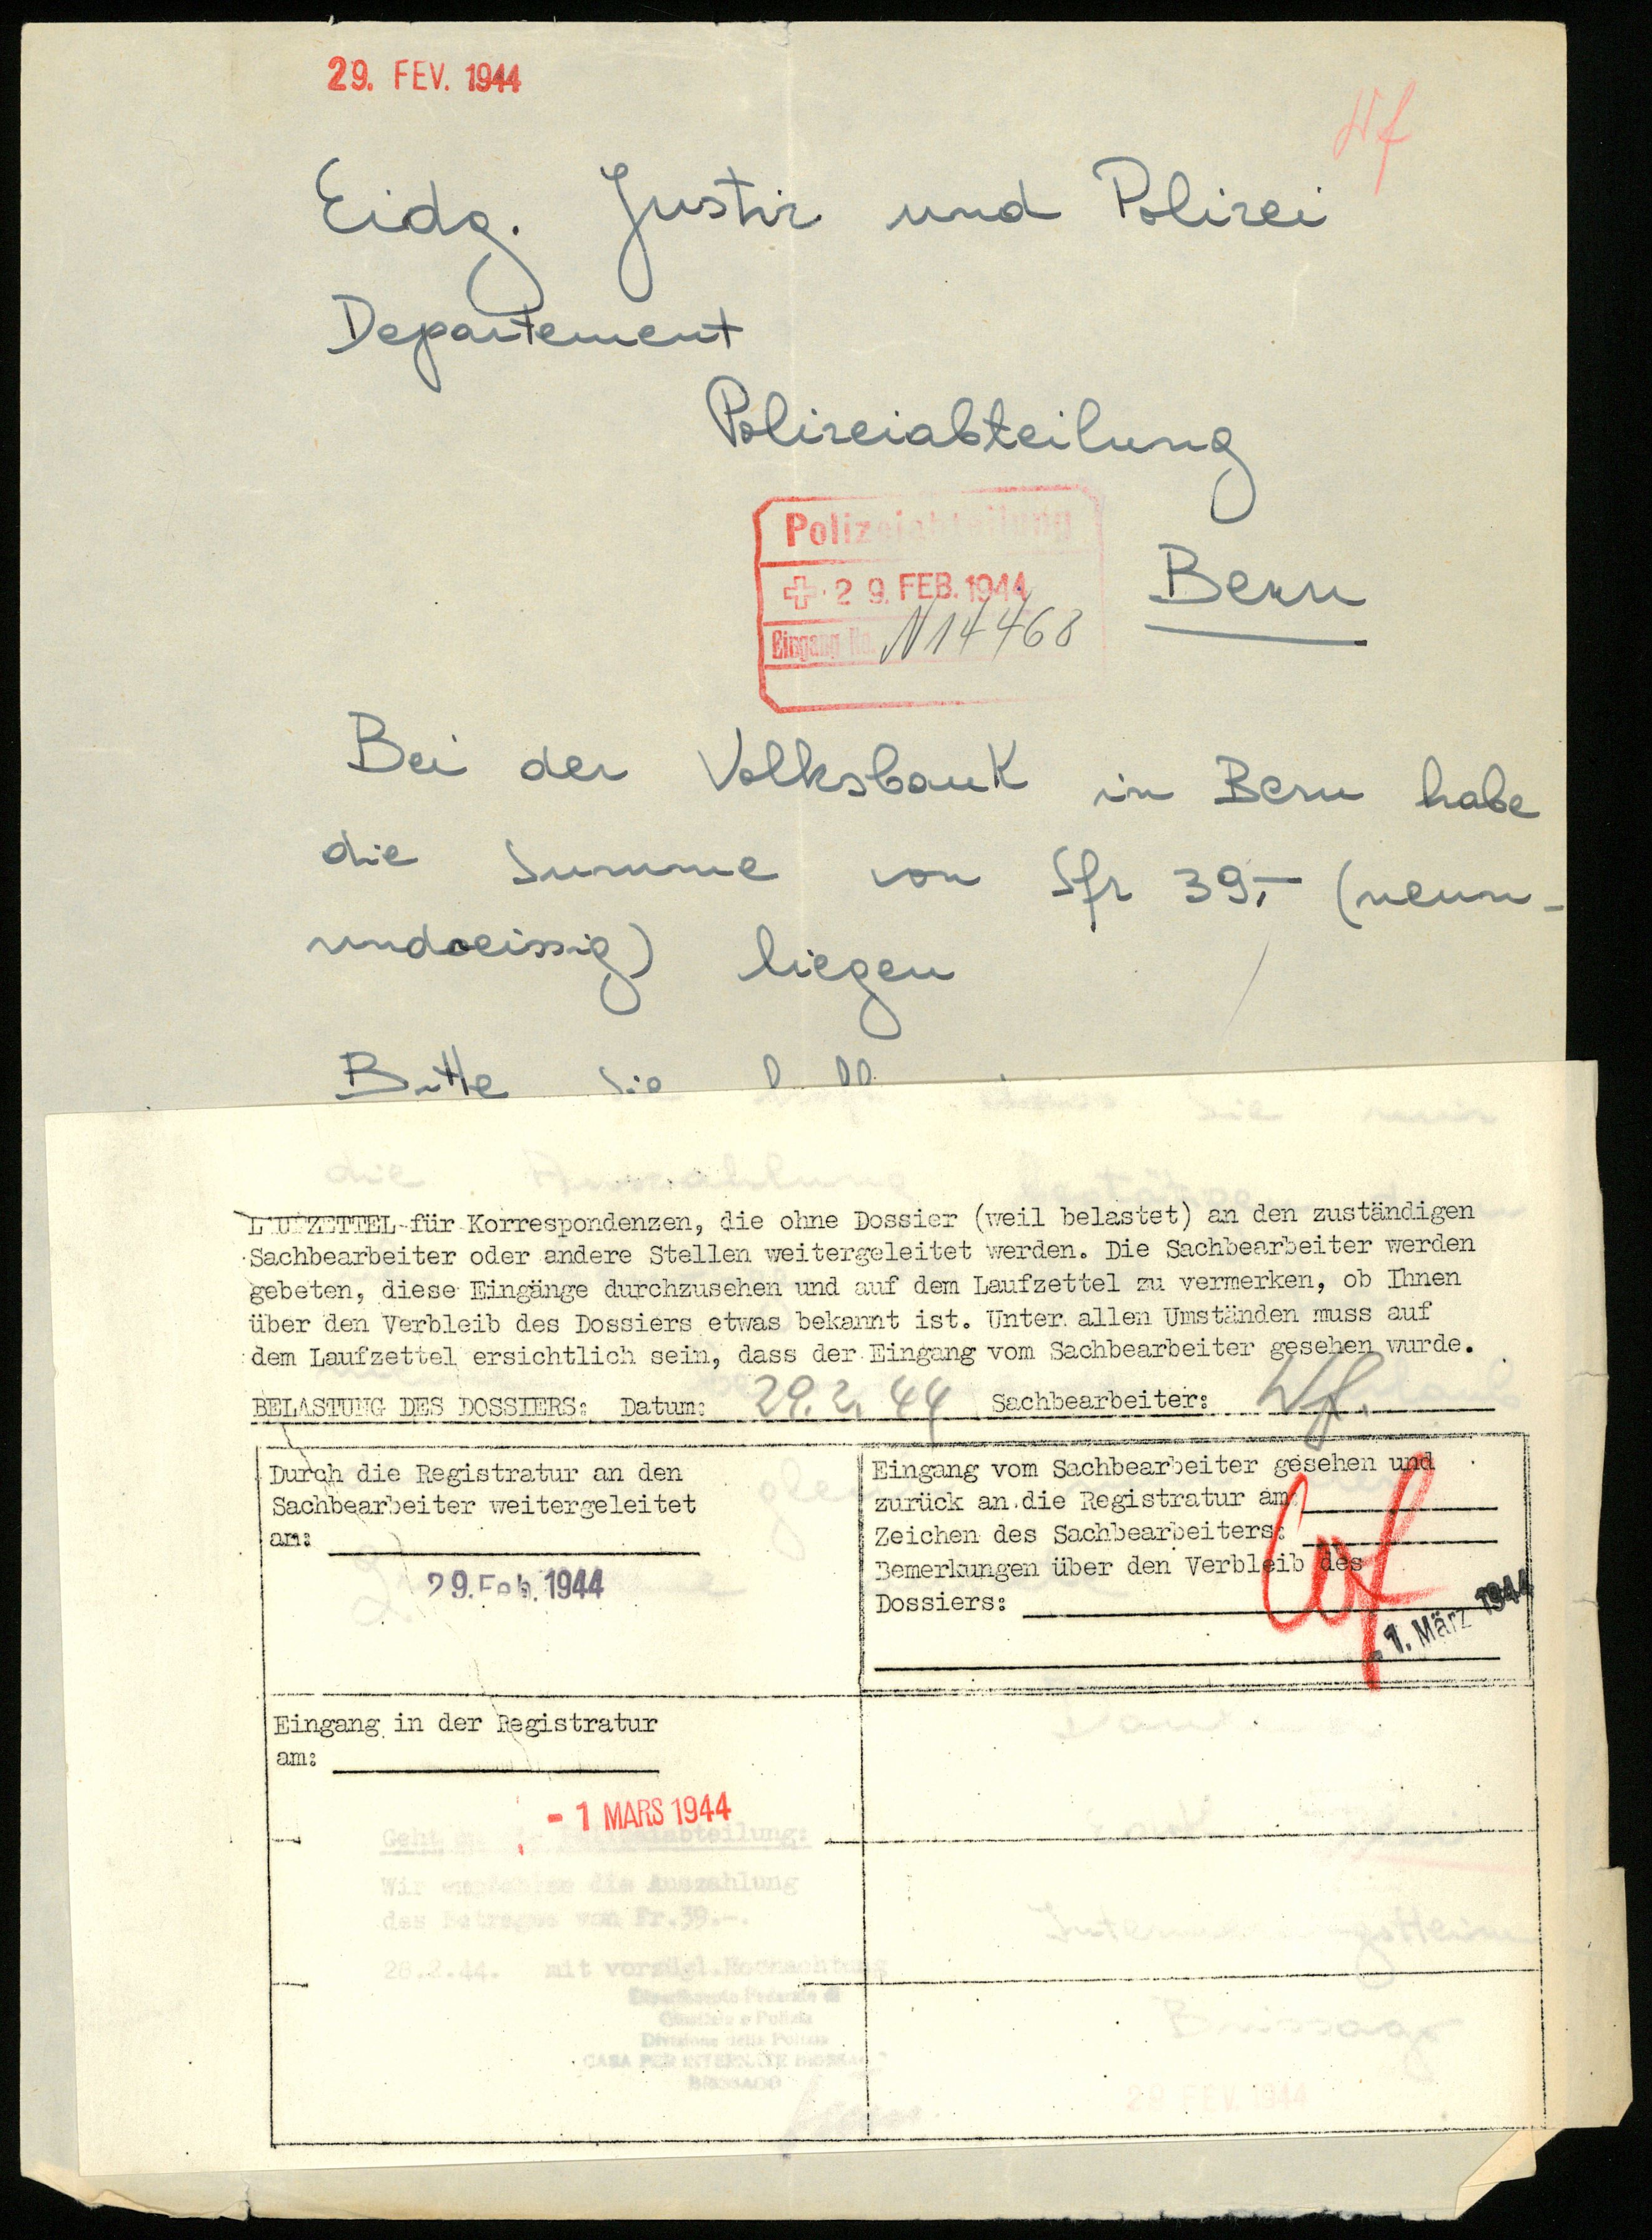 29. FEV. 1944
Wf
Eidg. Justiz und Polizei
Departement
Polizeiabteilung
Polizeiabteilung
29. FEB. 1944
Eingang No. N14468
Bern
Bei der Volksbank in Bern habe
die Summe von Sfr 39,- (neun-
unddreissig) liegen
Bitte Sie höfl. Sie mir
die Auszahlung
LAUFZETTEL für Korrespondenzen, die ohne Dossier (weil belastet) an den zuständigen
Sachbearbeiter oder andere Stellen weitergeleitet werden. Die Sachbearbeiter werden
gebeten, diese Eingänge durchzusehen und auf dem Laufzettel zu vermerken, ob Ihnen
über den Verbleib des Dossiers etwas bekannt ist. Unter allen Umständen muss auf
dem Laufzettel ersichtlich sein, dass der Eingang vom Sachbearbeiter gesehen wurde.
BELASTUNG DES DOSSIERS: Datum: 29.2.44 Sachbearbeiter: Wf.
Durch die Registratur an den
Sachbearbeiter weitergeleitet
am:
29. Feb. 1944
Eingang vom Sachbearbeiter gesehen und
zurück an die Registratur am:
Zeichen des Sachbearbeiters: Wf
Bemerkungen über den Verbleib des
Dossiers:
- 1. März 1944
Eingang in der Registratur
am:
- 1 MARS 1944
Geht an die Polizeiabteilung:
Wir empfehlen die Auszahlung
des Betrages von Fr.39.-.
28.2.44. mit vorzügl. Hochachtung
Dipartimento Federale di
Giustizia e Polizia
Divisione della Polizia
CASA PER INTERNATI BRISSAGO
BRISSAGO
Internierungsheim
Brissago
29 FEV. 1944